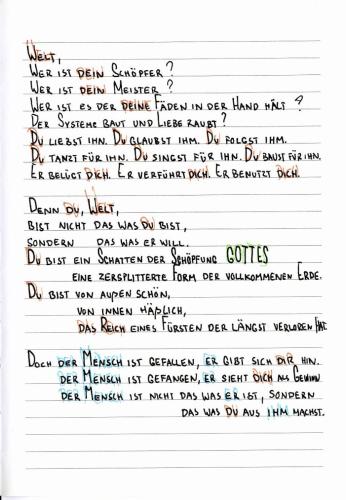 Welt,
Wer ist dein Schöpfer?
Wer ist dein Meister?
Wer ist es der deine Fäden in der Hand hält?
Der Systeme baut und Liebe raubt?
Du liebst ihn. Du glaubst ihm. Du folgst ihm.
Du tanzt für ihn. Du singst für ihn. Du baust für ihn.
Er belügt dich. Er verführt dich. Er benutzt dich.
Denn du, Welt,
bist nicht das was du bist,
sondern das was er will.
Du bist ein Schatten der Schöpfung GOTTES
eine zersplitterte Form der vollkommenen Erde.
Du bist von außen schön,
von innen häßlich,
das Reich eines Fürsten der längst verloren hat.
Doch der Mensch ist gefallen, er gibt sich dir hin.
der Mensch ist gefangen, er sieht dich als Gewinn
der Mensch ist nicht das was er ist, sondern
das was du aus ihm machst.